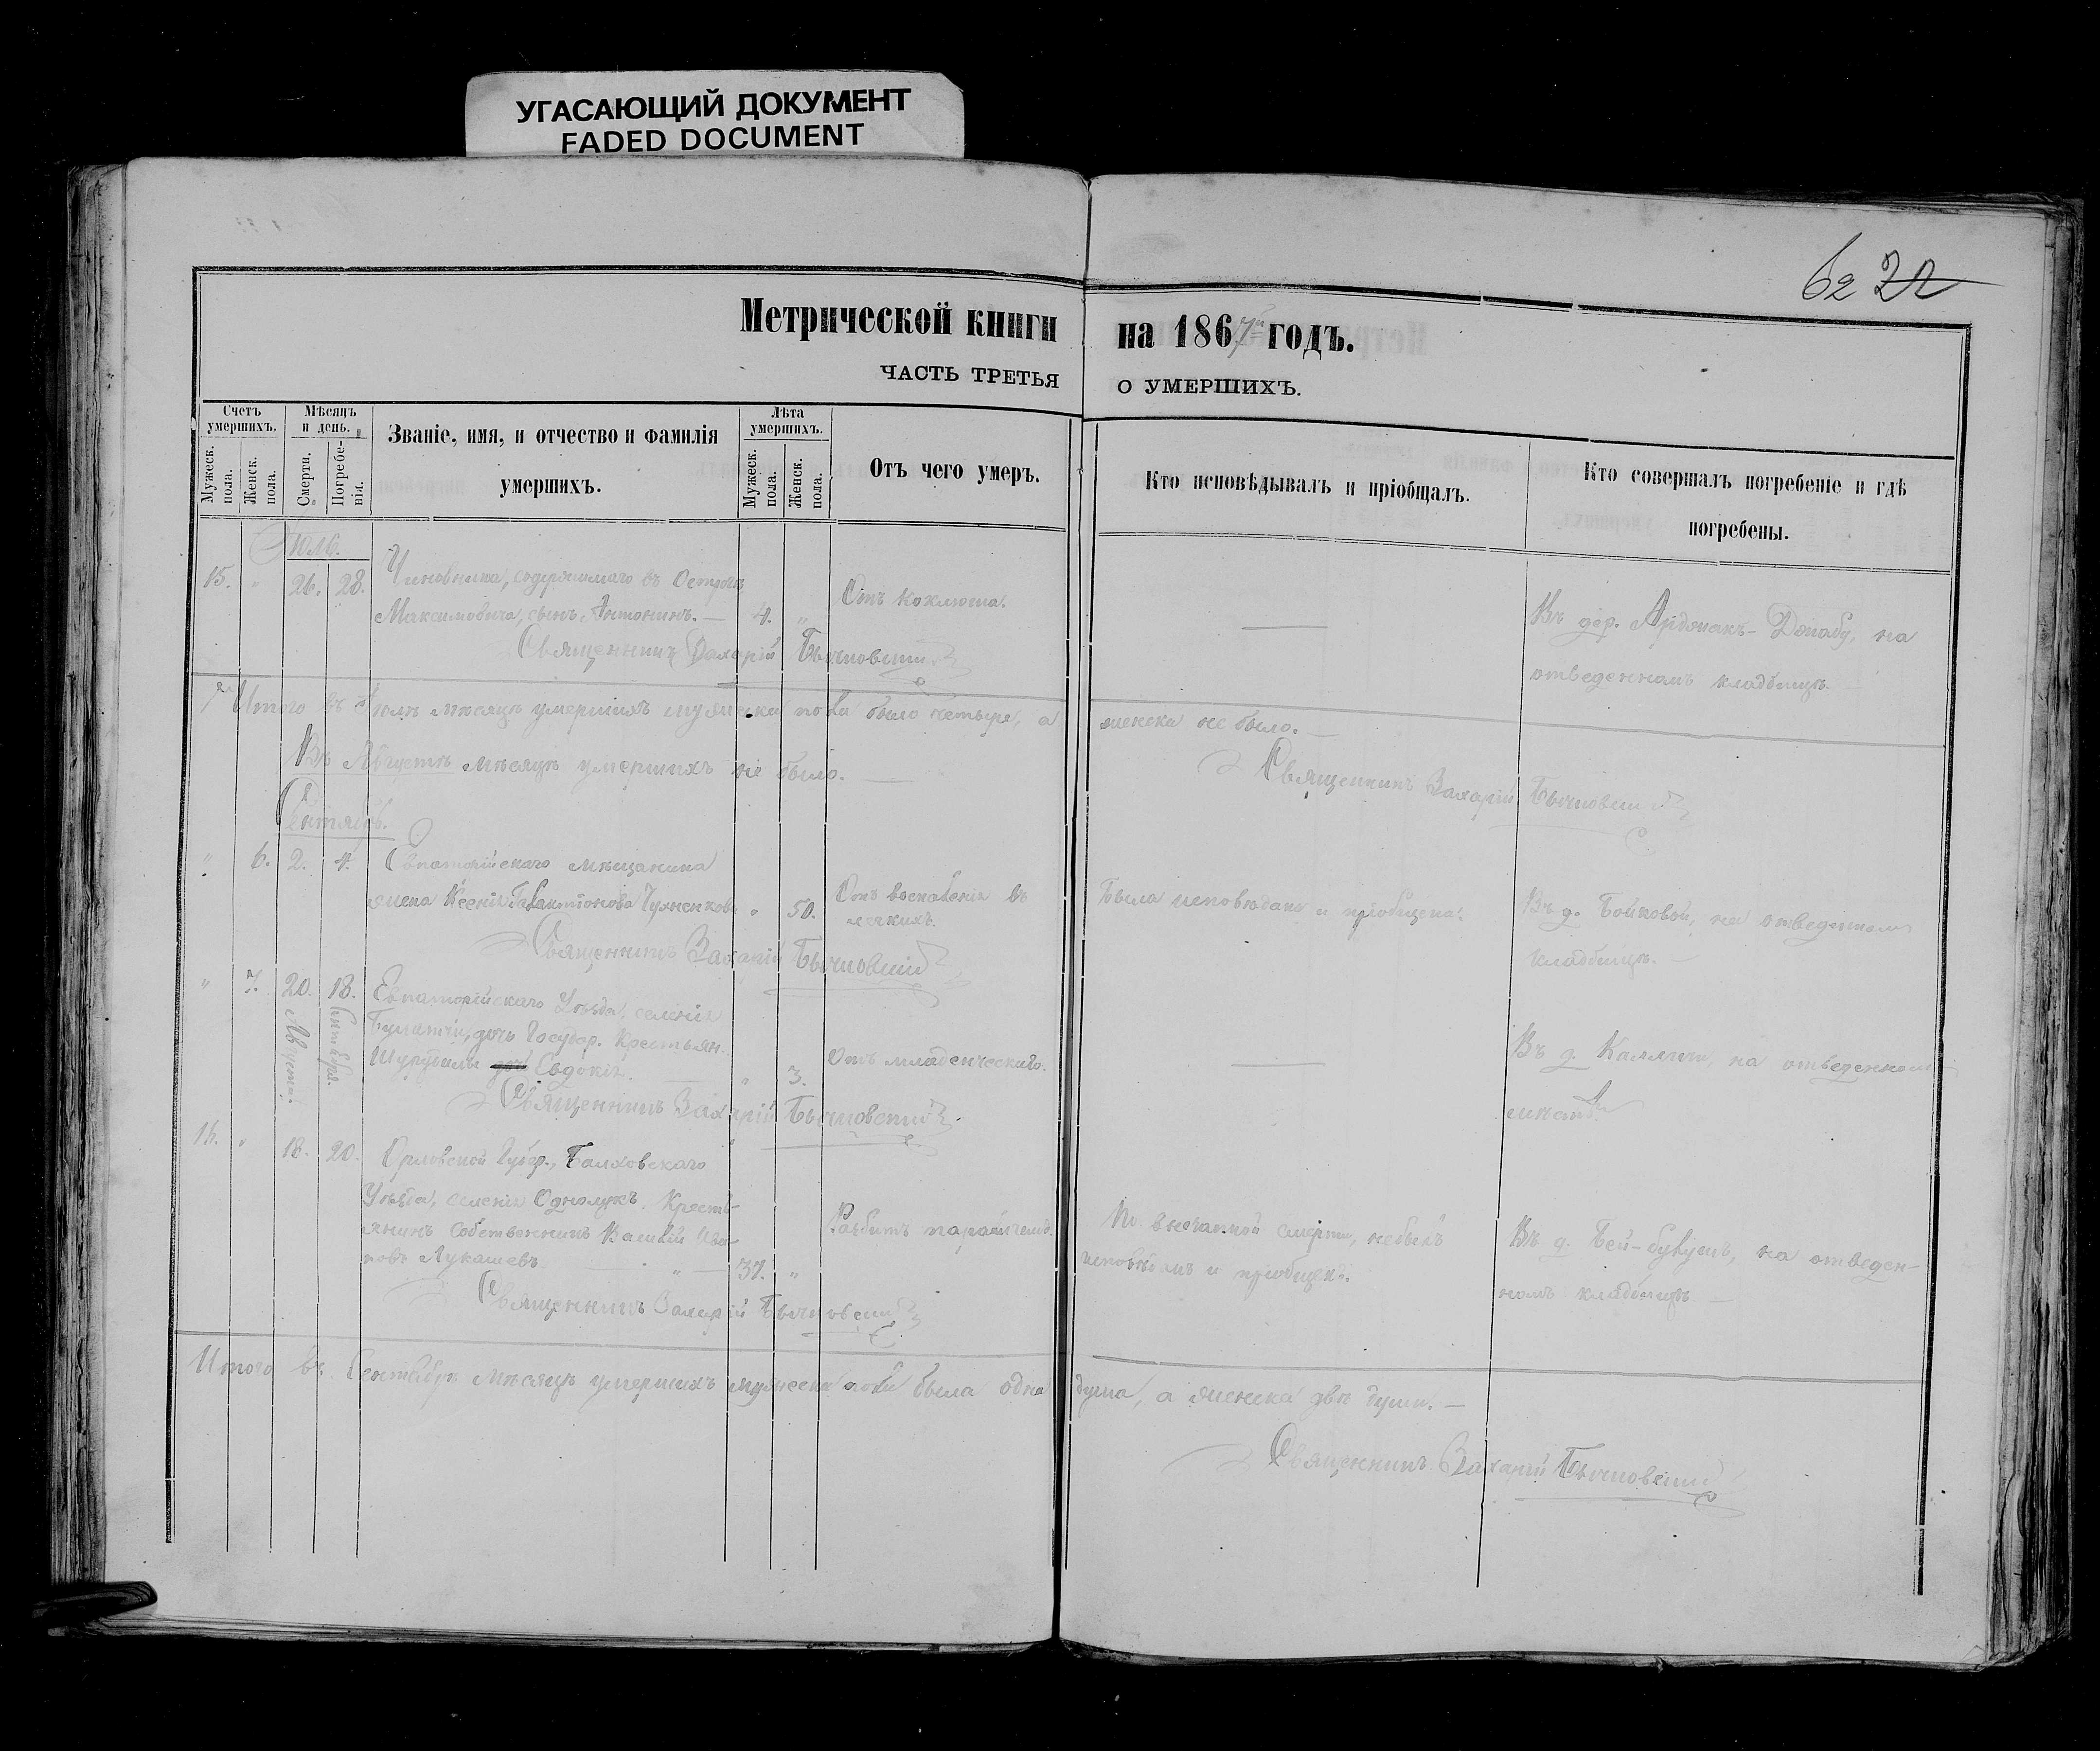 УГАСАЮЩИЙ ДОКУМЕНТ
FADED DOCUMENT
62 22
Метрической книги на 1867й годъ.
ЧАСТЬ ТРЕТЬЯ О УМЕРШИХЪ.
Счетъ умершихъ.
Мужеск. пола.
Женск. пола.
Мѣсяцъ и день.
Смерти.
Погребенія.
Званіе, имя, и отчество и фамилія умершихъ.
Лѣта умершихъ.
Мужеск. пола.
Женск. пола.
Отъ чего умеръ.
Кто исповѣдывалъ и пріобщалъ.
Кто совершалъ погребеніе и гдѣ погребены.
Іюль.
15. " 26. 28. Чиновника, содержимаго въ Острогѣ
Максимовича, сынъ Антонинъ. — 4. "
Отъ коклюша.
—
Въ дер. на
отведенномъ кладбищѣ. —
Священникъ Захарій
Итого въ Іюлѣ мѣсяцѣ умершихъ мужеска пола было четыре, а женска не было. —
Въ Августѣ мѣсяцѣ умершихъ не было. —
Священникъ Захарій
Сентябрь.
" 6. 2. 4. Евпаторійскаго мѣщанина
жена Ксенія " 50.
Отъ воспаленія въ
легкихъ.
Была исповѣдана и пріобщена.
Въ д. на отведенномъ
кладбищѣ. —
Священникъ Захарій
" 7. 20. Августа. 18. Сентября. Евпаторійскаго Уѣзда, селенія
дочь Государ. Крестьян.
Евдокія. — " 3.
Отъ младенческаго.
—
Въ д. на отведенномъ
мѣстѣ.
Священникъ Захарій
16. " 18. 20. Орловской Губер., Балховскаго
Уѣзда, селенія Однолукъ. Кресть-
янинъ собственникъ Василій Ива-
новъ Лукашевъ. — 37. "
Разбитъ параличемъ.
По внезапной смерти, небылъ
исповѣданъ и пріобщенъ.
Въ д. на отведен-
номъ кладбищѣ —
Священникъ Захарій
Итого въ Сентябрѣ мѣсяцѣ умершихъ мужеска пола была одна душа, а женска двѣ души. —
Священникъ Захарій